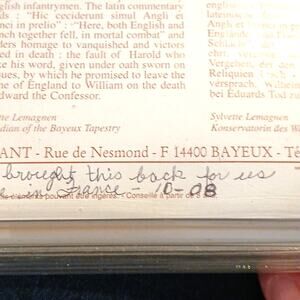 nglish infantrymen. The latin commentary
ds : "Hic ceciderunt simul Angli et
" : "Here, both English and
nch together fell, in mortal combat" and
ders homage to vanquished and victors
ed in death : the fault of Harold who
ke his word, given under oath sworn on
ues, by which he promised to leave the
ne of England to William on the death
dward the Confessor.
ette Lemagnen
dian of the Bayeux Tapestry
lateinisc
Angli e
Englän
Schlacht
der ehrt
Harold
gegeben
Reliquien
versprach, Wilhelm
bei Eduards Tod zu
Sylvette Lemagnen
Konservatorin des W
ANT - Rue de Nesmond - F 14400 BAYEUX - Té
brought this back for us
e in France - 10-08
s éléments pouvant être ingérés. - Conseillé à partir de 8